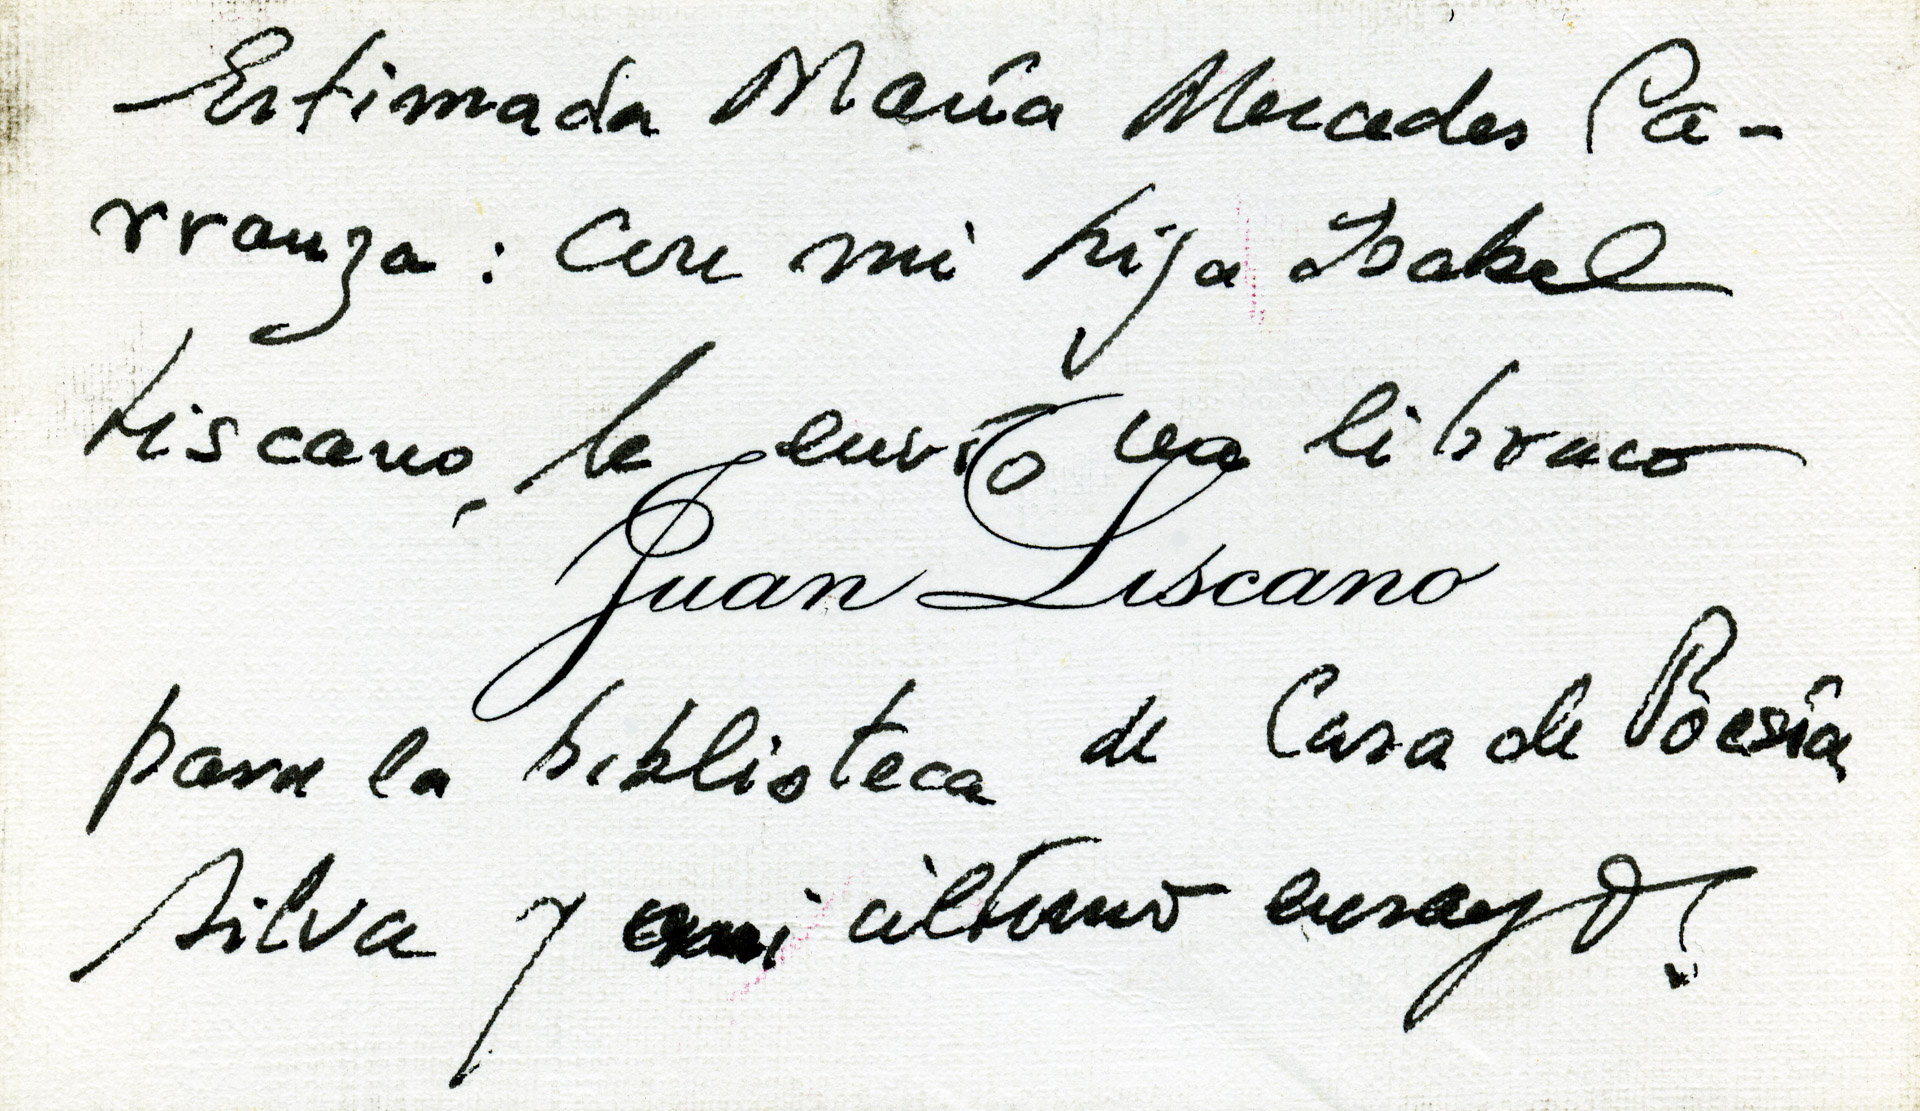 Estimada María Mercedes Ca-
rranza: Con mi hija Isabel
Liscano, le envío un libraco
Juan Liscano
para la biblioteca de Casa de Poesía
Silva y mi último ensayo